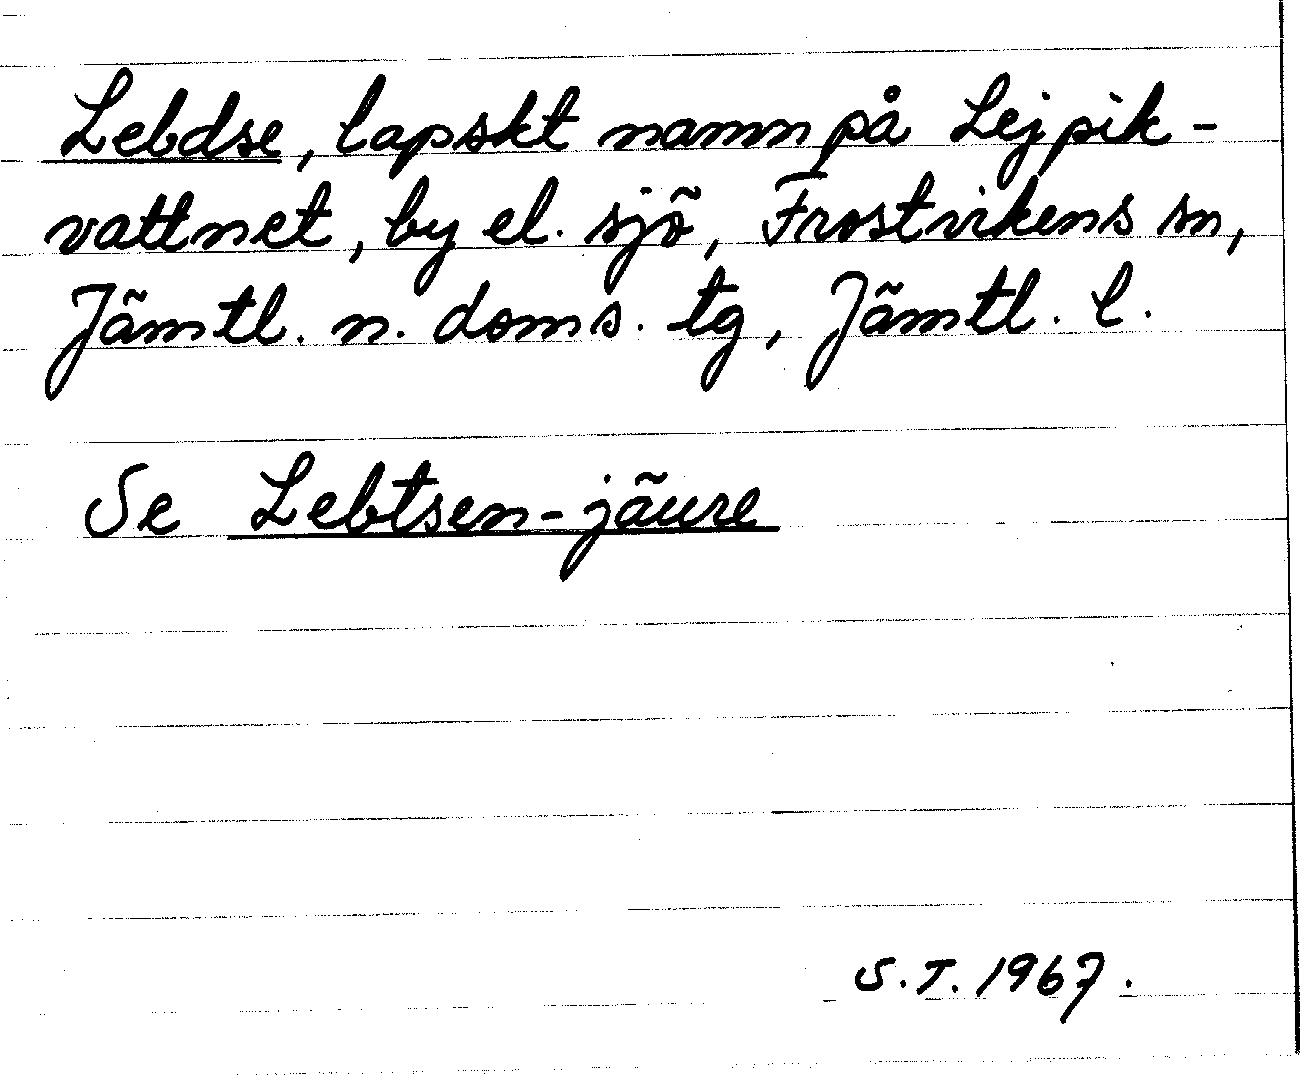 Lebdse, lapskt namn på Lejpik-
vattnet, by el. sjö, Frostvikens sn,
Jämtl. n. doms. tg, Jämtl. l.
Se Lebtsen-jäure
S.T. 1967.